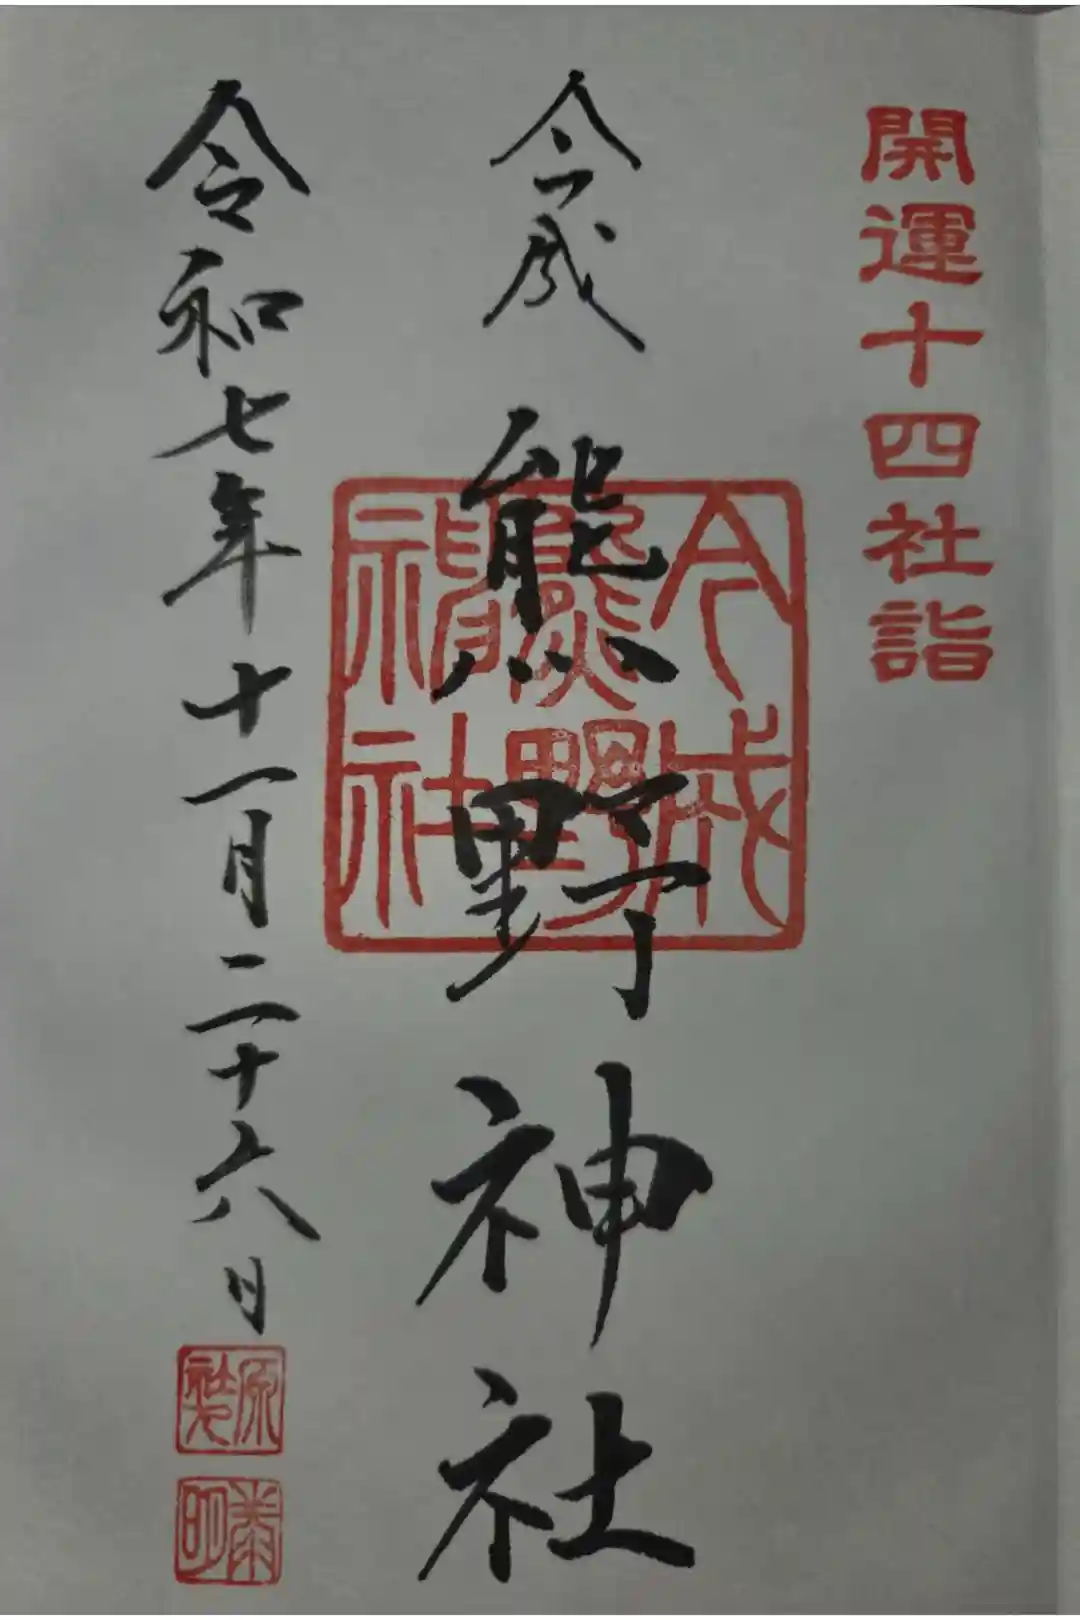 開運十四社詣
今成 熊野神社
今成
熊野
神社
令和七年十一月二十六日